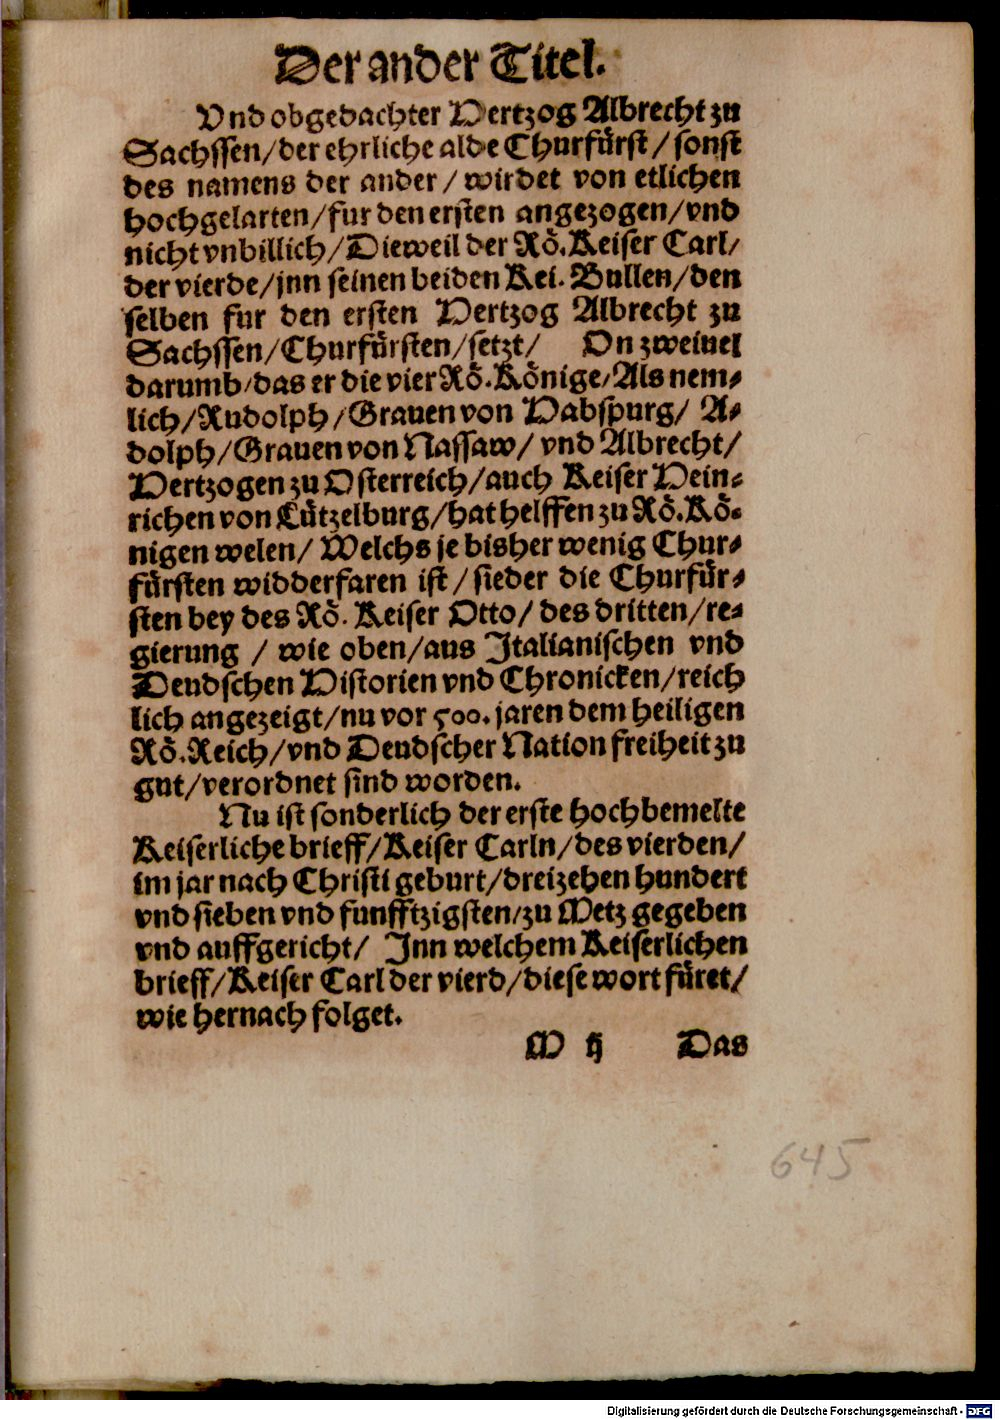 Der ander Titel.
Vnd obgedachter Hertzog Albrecht zu
Sachssen/der ehrliche alde Churfürst/sonst
des namens der ander/wirdet von etlichen
hochgelarten/fur den ersten angezogen/vnd
nicht vnbillich/Dieweil der Rö.Keiser Carl/
der vierde/jnn seinen beiden Kei. Bullen/den
selben fur den ersten Hertzog Albrecht zu
Sachssen/Churfürsten/setzt/ On zweiuel
darumb/das er die vier Rö.Könige/Als nem⸗
lich/Rudolph/Grauen von Habspurg/ A⸗
dolph/Grauen von Nassaw/ vnd Albrecht/
Hertzogen zu Osterreich/auch Keiser Hein⸗
richen von Lützelburg/hat helffen zu Rö.Kö⸗
nigen welen/ Welchs je bisher wenig Chur⸗
fürsten widderfaren ist/sieder die Churfür⸗
sten bey des Rö. Keiser Otto/ des dritten/re⸗
gierung / wie oben/aus Jtalianischen vnd
Deudschen Historien vnd Chronicken/reich
lich angezeigt/nu vor 500. jaren dem heiligen
Rö.Reich/vnd Deudscher Nation freiheit zu
gut/verordnet sind worden.
Nu ist sonderlich der erste hochbemelte
Keiserliche brieff/Keiser Carln/des vierden/
im jar nach Christi geburt/dreizehen hundert
vnd sieben vnd funfftzigsten/zu Metz gegeben
vnd auffgericht/ Jnn welchem Keiserlichen
brieff/Keiser Carl der vierd/diese wort füret/
wie hernach folget.
M ij Das
645
Digitalisierung gefördert durch die Deutsche Forschungsgemeinschaft - DFG